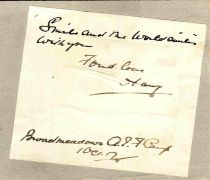 Smile and the World smiles
with you
Fond love
Harry
Broadmeadows A.I.F Camp